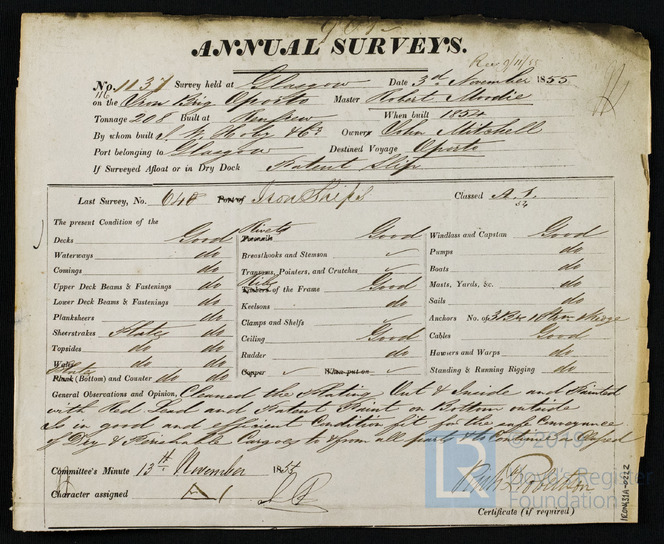 Rec 9/11/55
ANNUAL SURVEYS.
No. 1137 Survey held at Glasgow Date 3rd November 1855
on the Iron Brig Oporto Master Robert Moodie
Tonnage 208 Built at Renfrew When built 1854
By whom built J. W. Hoby & Co Owners John Mitchell
Port belonging to Glasgow Destined Voyage Oporto
If Surveyed Afloat or in Dry Dock Patent Slip
Last Survey, No. 648 Port of Iron Ships Classed A.1.
54
The present Condition of the
Decks Good Rivets Good Windlass and Capstan Good
Waterways do Breasthooks and Stemson ✓ Pumps do
Comings do Transoms, Pointers, and Crutches ✓ Boats do
Upper Deck Beams & Fastenings do Ribs Timbers of the Frame Good Masts, Yards, &c. do
Lower Deck Beams & Fastenings do Keelsons do Sails do
Planksheers do Clamps and Shelfs ✓ Anchors No. of
Sheerstrakes Plates do do Ceiling Good Cables Good
Topsides do do Rudder do Hawsers and Warps do
Wales do do Copper ✓ When put on ✓ Standing & Running Rigging do
Plates Plank (Bottom) and Counter do do
General Observations and Opinion, Cleaned the Plating Out & Inside and Painted
with Red Lead and Patent Paint on Bottom outside
is in good and efficient Condition fit for the safe Conveyance
of Dry & Perishable Cargoes to & from all parts & to Continue as Classed
Committee's Minute 13th November 1855
Character assigned A 1
Certificate (if required)
© 2019
LR Lloyd's Register
Foundation
IRON31A-0222